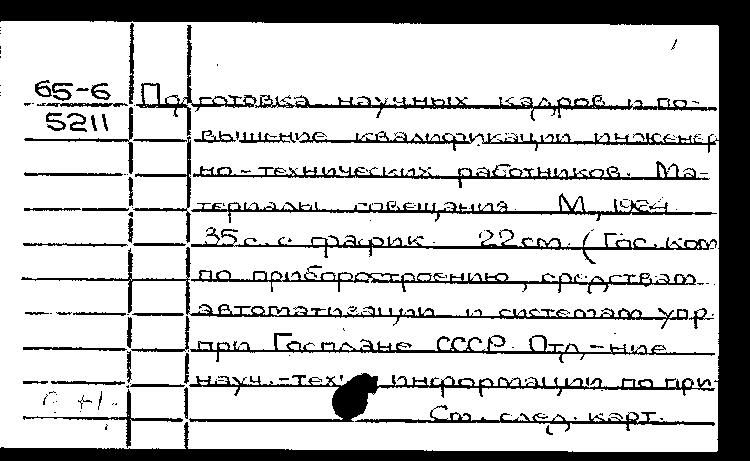 65-6 Подготовка научных кадров и по-
5211 вышение квалификации инженер
но-технических работников. Ма-
териалы совещания М., 1964
35с. с график. 22см. (Гос. ком
по приборостроению, средствам
автоматизации и системам упр.
при Госплане СССР. Отд-ние
науч.-тех. информации по при-
См. след. карт.